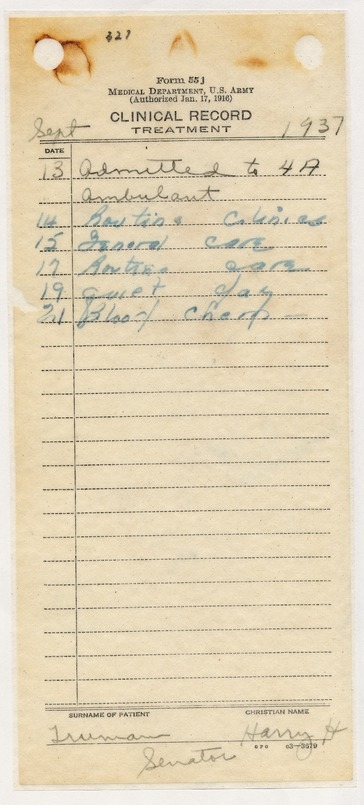 321
Form 55 J
MEDICAL DEPARTMENT, U.S. ARMY
(Authorized Jan. 17, 1916)
CLINICAL RECORD
TREATMENT
Sept 1937
DATE
13 Admitted to 4A
Ambulant
14 Routine Clinics
15 General care
17 Routine care
19 quiet day
21 Blood chem -
SURNAME OF PATIENT CHRISTIAN NAME
Truman Harry H
GPO c3-3679
Senator